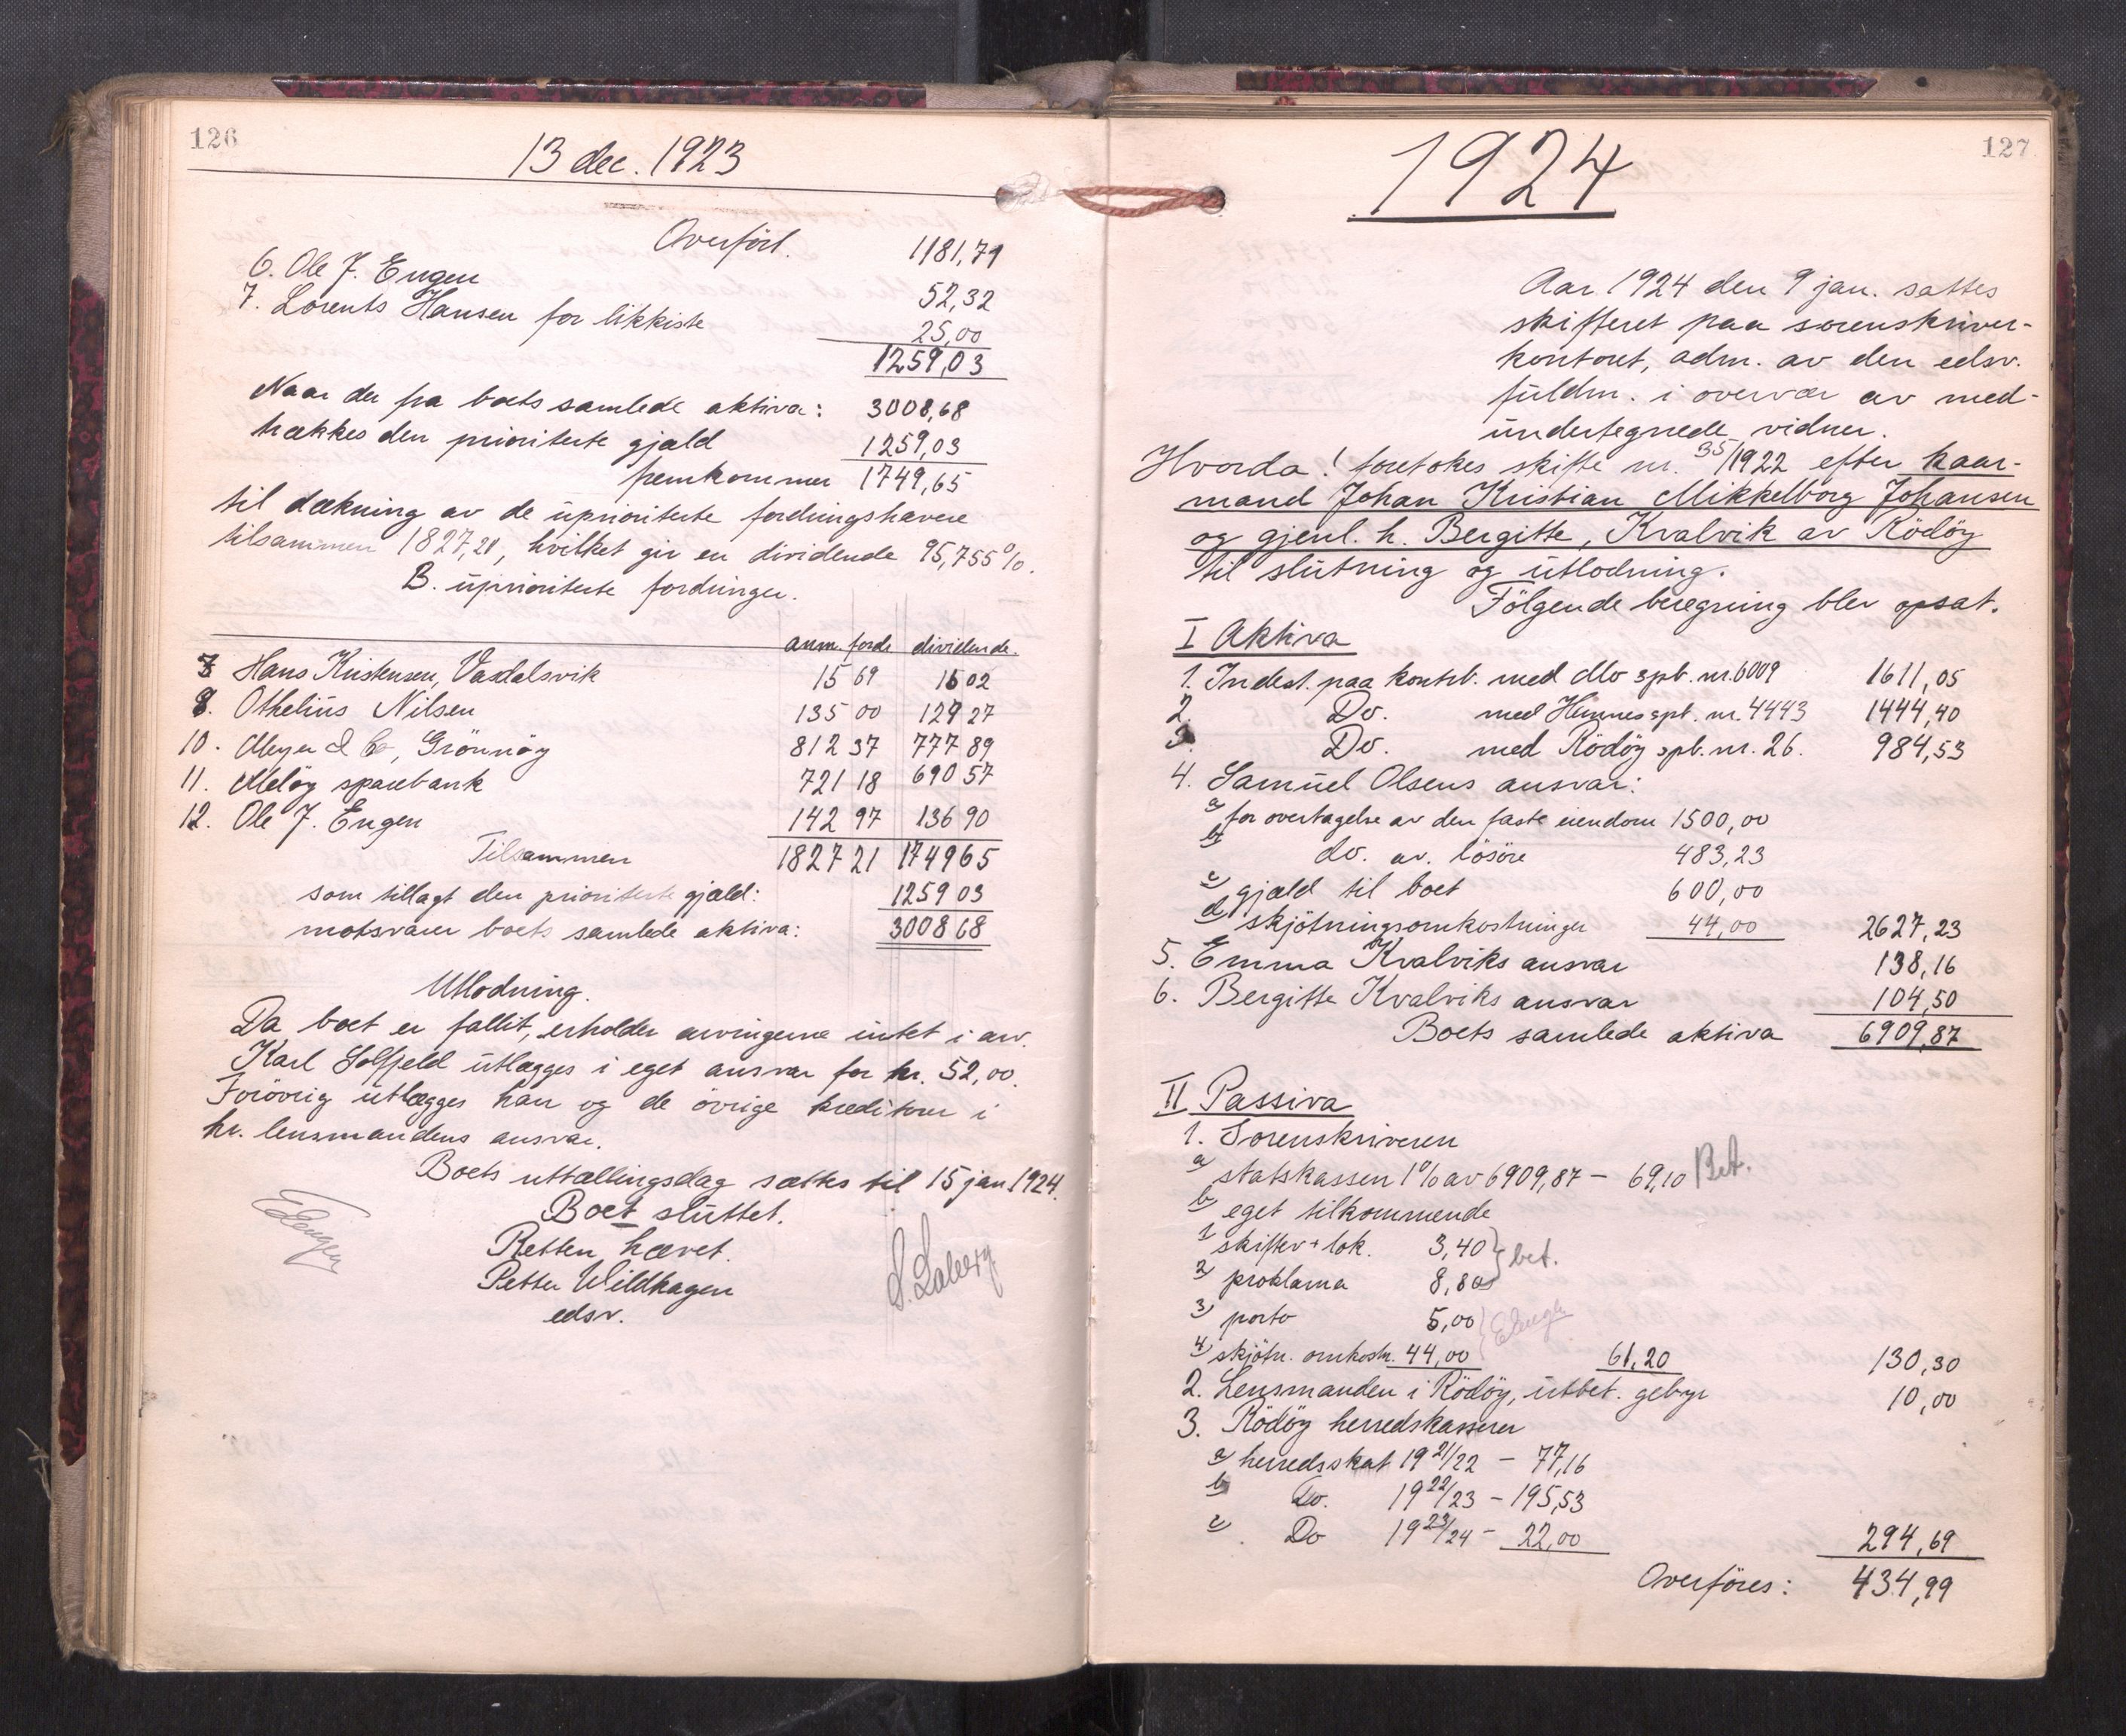 126
13 dec. 1923
Overført. 1181,71
6. Ole J. Engen 52,32
7. Lorents Hansen for likkiste 25,00
1259,03
Naar der fra boets samlede aktiva: 3008,68
trækkes den prioriterte gjæld 1259,03
fremkommer 1749,65
til dækning av de uprioriterte fordringshavere
tilsammen 1827,21, hvilket gir en dividende 95,755%.
B. uprioriterte fordringer.
anm. fordr. dividende.
8 Hans Kristensen, Vasdalsvik 15 69 15 02
9. Othelius Nilsen 135 00 129 27
10. Meyer & Co, Grønnøy 812 37 777 89
11. Meløy sparebank 721 18 690 57
12. Ole J. Engen 142 97 136 90
Tilsammen 1827 21 1749 65
som tillagt den prioriterte gjæld: 1259 03
motsvarer boets samlede aktiva: 3008 68
Utlodning.
Da boet er fallit, erholder arvingerne intet i arv.
Karl Solfjeld utlægges i eget ansvar for kr. 52,00.
Forøvrig utlægges han og de øvrige kreditorer i
hr. lensmandens ansvar.
Boets uttællingsdag sættes til 15 jan 1924.
Boet sluttet.
Retten hævet.
Petter Wildhagen
edsv.
127
1924
Aar 1924 den 9 jan. sattes
skifteret paa sorenskriver-
kontoret, adm. av den edsv.
fuldm. i overvær av med-
undertegnede vidner.
Hvorda! foretokes skifte nr. 35/1922 efter kaar-
mand Johan Kristian Mikkelborg Johansen
og gjenl. h. Bergitte, Kvalvik av Rødøy
til slutning og utlodning.
Følgende beregning blev opsat.
I Aktiva
1. Indest. paa kontrb. med Mo spb. nr. 6009 1611,05
2. Do. med Hemnes spb. nr. 4443 1444,40
3. Do. med Rødøy spb. nr. 26. 984,53
4. Samuel Olsens ansvar:
a) for overtagelse av den faste eiendom 1500,00
b) do. av. løsøre 483,23
c) gjæld til boet 600,00
d) skjøtningsomkostninger 44,00 2627,23
5. Emma Kvalviks ansvar 138,16
6. Bergitte Kvalviks ansvar 104,50
Boets samlede aktiva 6909,87
II Passiva
1. Sorenskriveren
a) statskassen 1% av 6909,87 – 69,10 Bet.
b) eget tilkommende
1) skiftev + lok. 3,40 } bet.
2) proklama 8,80
3) porto 5,00
4) skjøtn. omkostn. 44,00 61,20 130,30
2. Lensmanden i Rødøy, utbet. gebyr 10,00
3. Rødøy herredskasserer
a) herredsskat 19 21/22 – 77,16
b) Do. 19 22/23 – 195,53
c) Do 19 23/24 – 22,00 294,69
Overføres: 434,99